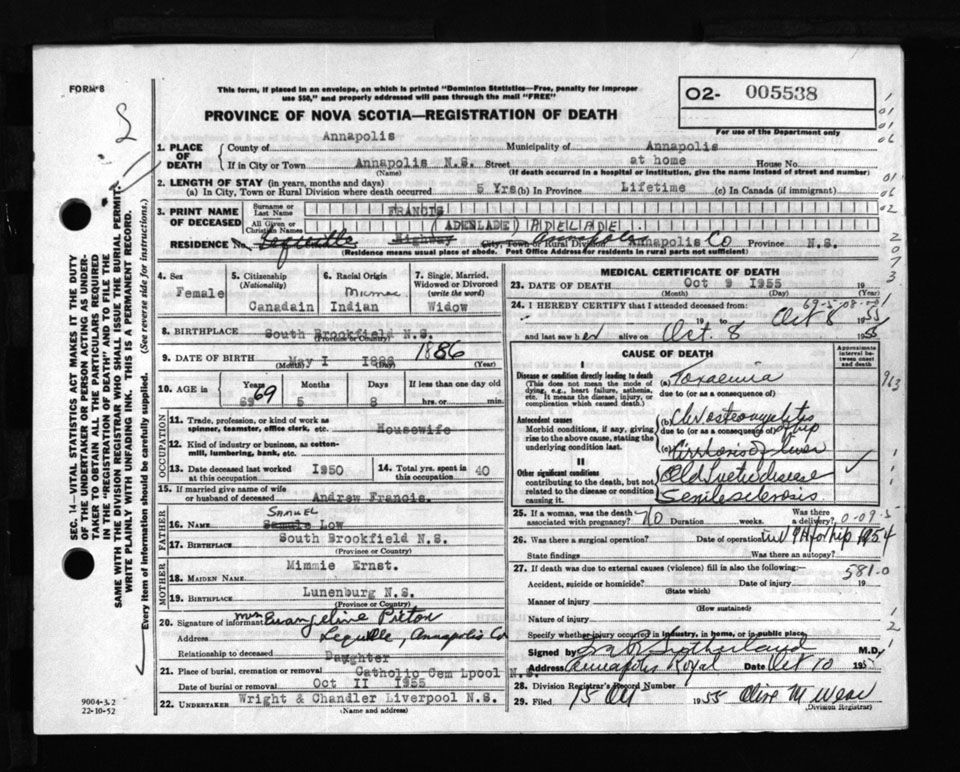 FORM 8
This form, if placed in an envelope, on which is printed "Dominion Statistics—Free, penalty for improper
use $50," and properly addressed will pass through the mail "FREE"
O2- 005538
For use of the Department only
PROVINCE OF NOVA SCOTIA—REGISTRATION OF DEATH
1. PLACE OF DEATH
County of Annapolis Municipality of Annapolis
If in City or Town Annapolis N.S. Street at home House No.
(Name) (If death occurred in a hospital or institution, give the name instead of street and number)
2. LENGTH OF STAY (in years, months and days)
(a) In City, Town or Rural Division where death occurred 5 Yrs (b) In Province Lifetime (c) In Canada (if immigrant)
3. PRINT NAME OF DECEASED
Surname or Last Name FRANCIS
All Given or Christian Names (ADENLADE) ADELADE
RESIDENCE No. Lequille Highway City, Town or Rural Division Annapolis Co Province N.S.
(Residence means usual place of abode. Post Office Address for residents in rural parts not sufficient)
4. Sex Female
5. Citizenship (Nationality) Canadain
6. Racial Origin Micmac Indian
7. Single, Married, Widowed or Divorced (write the word) Widow
8. BIRTHPLACE South Brookfield N.S.
(Province or Country)
9. DATE OF BIRTH May I 1886
(Month) (Day) (Year)
10. AGE in Years 69 Months 5 Days 8 If less than one day old hrs. or min.
OCCUPATION
11. Trade, profession, or kind of work as spinner, teamster, office clerk, etc. Housewife
12. Kind of industry or business, as cotten-mill, lumbering, bank, etc.
13. Date deceased last worked at this occupation I950
14. Total yrs. spent in this occupation 40
15. If married give name of wife or husband of deceased Andrew Francis.
FATHER
16. NAME SAMUEL Samule Low
17. BIRTHPLACE South Brookfield N.S.
(Province or Country)
MOTHER
18. MAIDEN NAME Mimmie Ernst.
19. BIRTHPLACE Lunenburg N.S.
(Province or Country)
20. Signature of informant Mrs Evangeline Pictou
Address Lequille, Annapolis Co
Relationship to deceased Daughter
21. Place of burial, cremation or removal Catholic Cem Lpool N.S.
Date of burial or removal Oct II I955
22. UNDERTAKER Wright & Chandler Liverpool N.S.
(Name and address)
9004-3.2
22-10-52
MEDICAL CERTIFICATE OF DEATH
23. DATE OF DEATH Oct 9 I955 19
(Month) (Day) (Year)
24. I HEREBY CERTIFY that I attended deceased from: 69-5-08
19 to Oct 8 1955
and last saw her alive on Oct. 8 1955
CAUSE OF DEATH
Approximate interval between onset and death
I
Disease or condition directly leading to death
(This does not mean the mode of dying, e.g., heart failure, asthenia, etc. It means the disease, injury, or complication which caused death.)
(a) Toxaemia
due to (or as a consequence of)
Antecedent causes
Morbid conditions, if any, giving rise to the above cause, stating the underlying condition last.
(b) Chr. osteomyelitis of hip
due to (or as a consequence of)
(c) Cirrhosis of liver
II
Other significant conditions
contributing to the death, but not related to the disease or condition causing it.
Old Luetic disease
Senile sclerosis
963
25. If a woman, was the death associated with pregnancy? No Duration weeks. Was there a delivery?
26. Was there a surgical operation? Date of operation 1954
State findings Was there an autopsy?
27. If death was due to external causes (violence) fill in also the following:— 581-0
Accident, suicide or homicide? Date of injury 19
(State which)
Manner of injury
(How sustained)
Nature of injury
Specify whether injury occurred in industry, in home, or in public place.
Signed by Sutherland M.D.
Address Annapolis Royal Date Oct 10 1955
28. Division Registrar's Record Number
29. Filed 15 Oct 1955 Olive M Wear
(Division Registrar)
SEC. 14—VITAL STATISTICS ACT MAKES IT THE DUTY
OF THE UNDERTAKER OR PERSON ACTING AS UNDER-
TAKER TO OBTAIN ALL THE PARTICULARS REQUIRED
IN THE "REGISTRATION OF DEATH" AND TO FILE THE
SAME WITH THE DIVISION REGISTRAR WHO SHALL ISSUE THE BURIAL PERMIT.
WRITE PLAINLY WITH UNFADING INK. THIS IS A PERMANENT RECORD.
Every item of information should be carefully supplied. (See reverse side for instructions.)